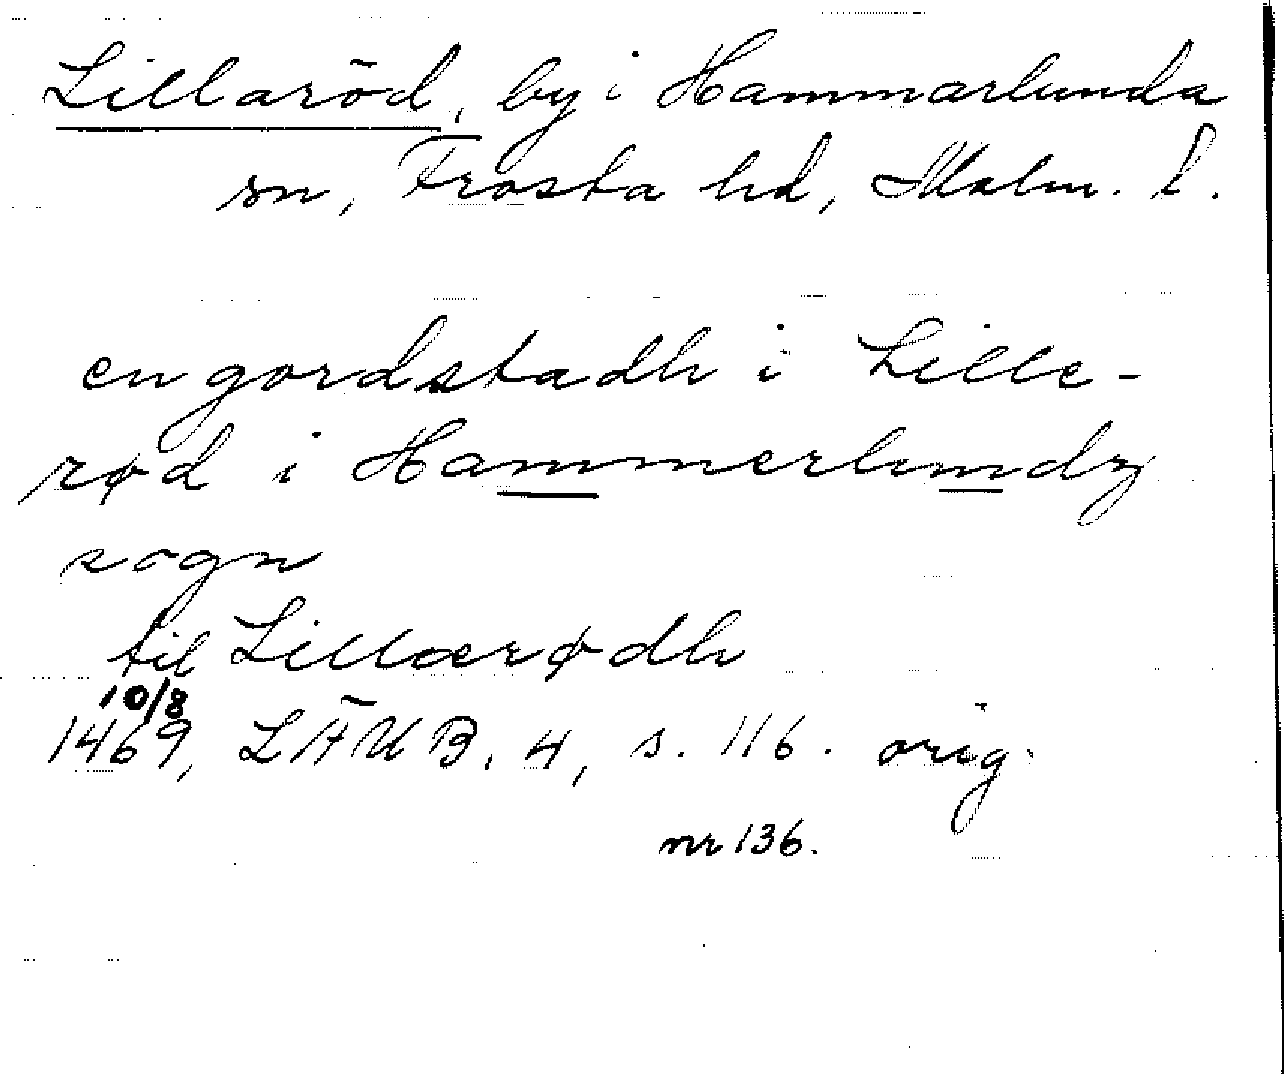 Lillaröd, by i Hammarlunda
sn, Frosta hd, Malm. l.
en gordstadh i Lille-
rød i Hammerlundz
sogn
til Lillærødh
10/8
1469, LÄUB. 4, s. 116. orig.
nr 136.